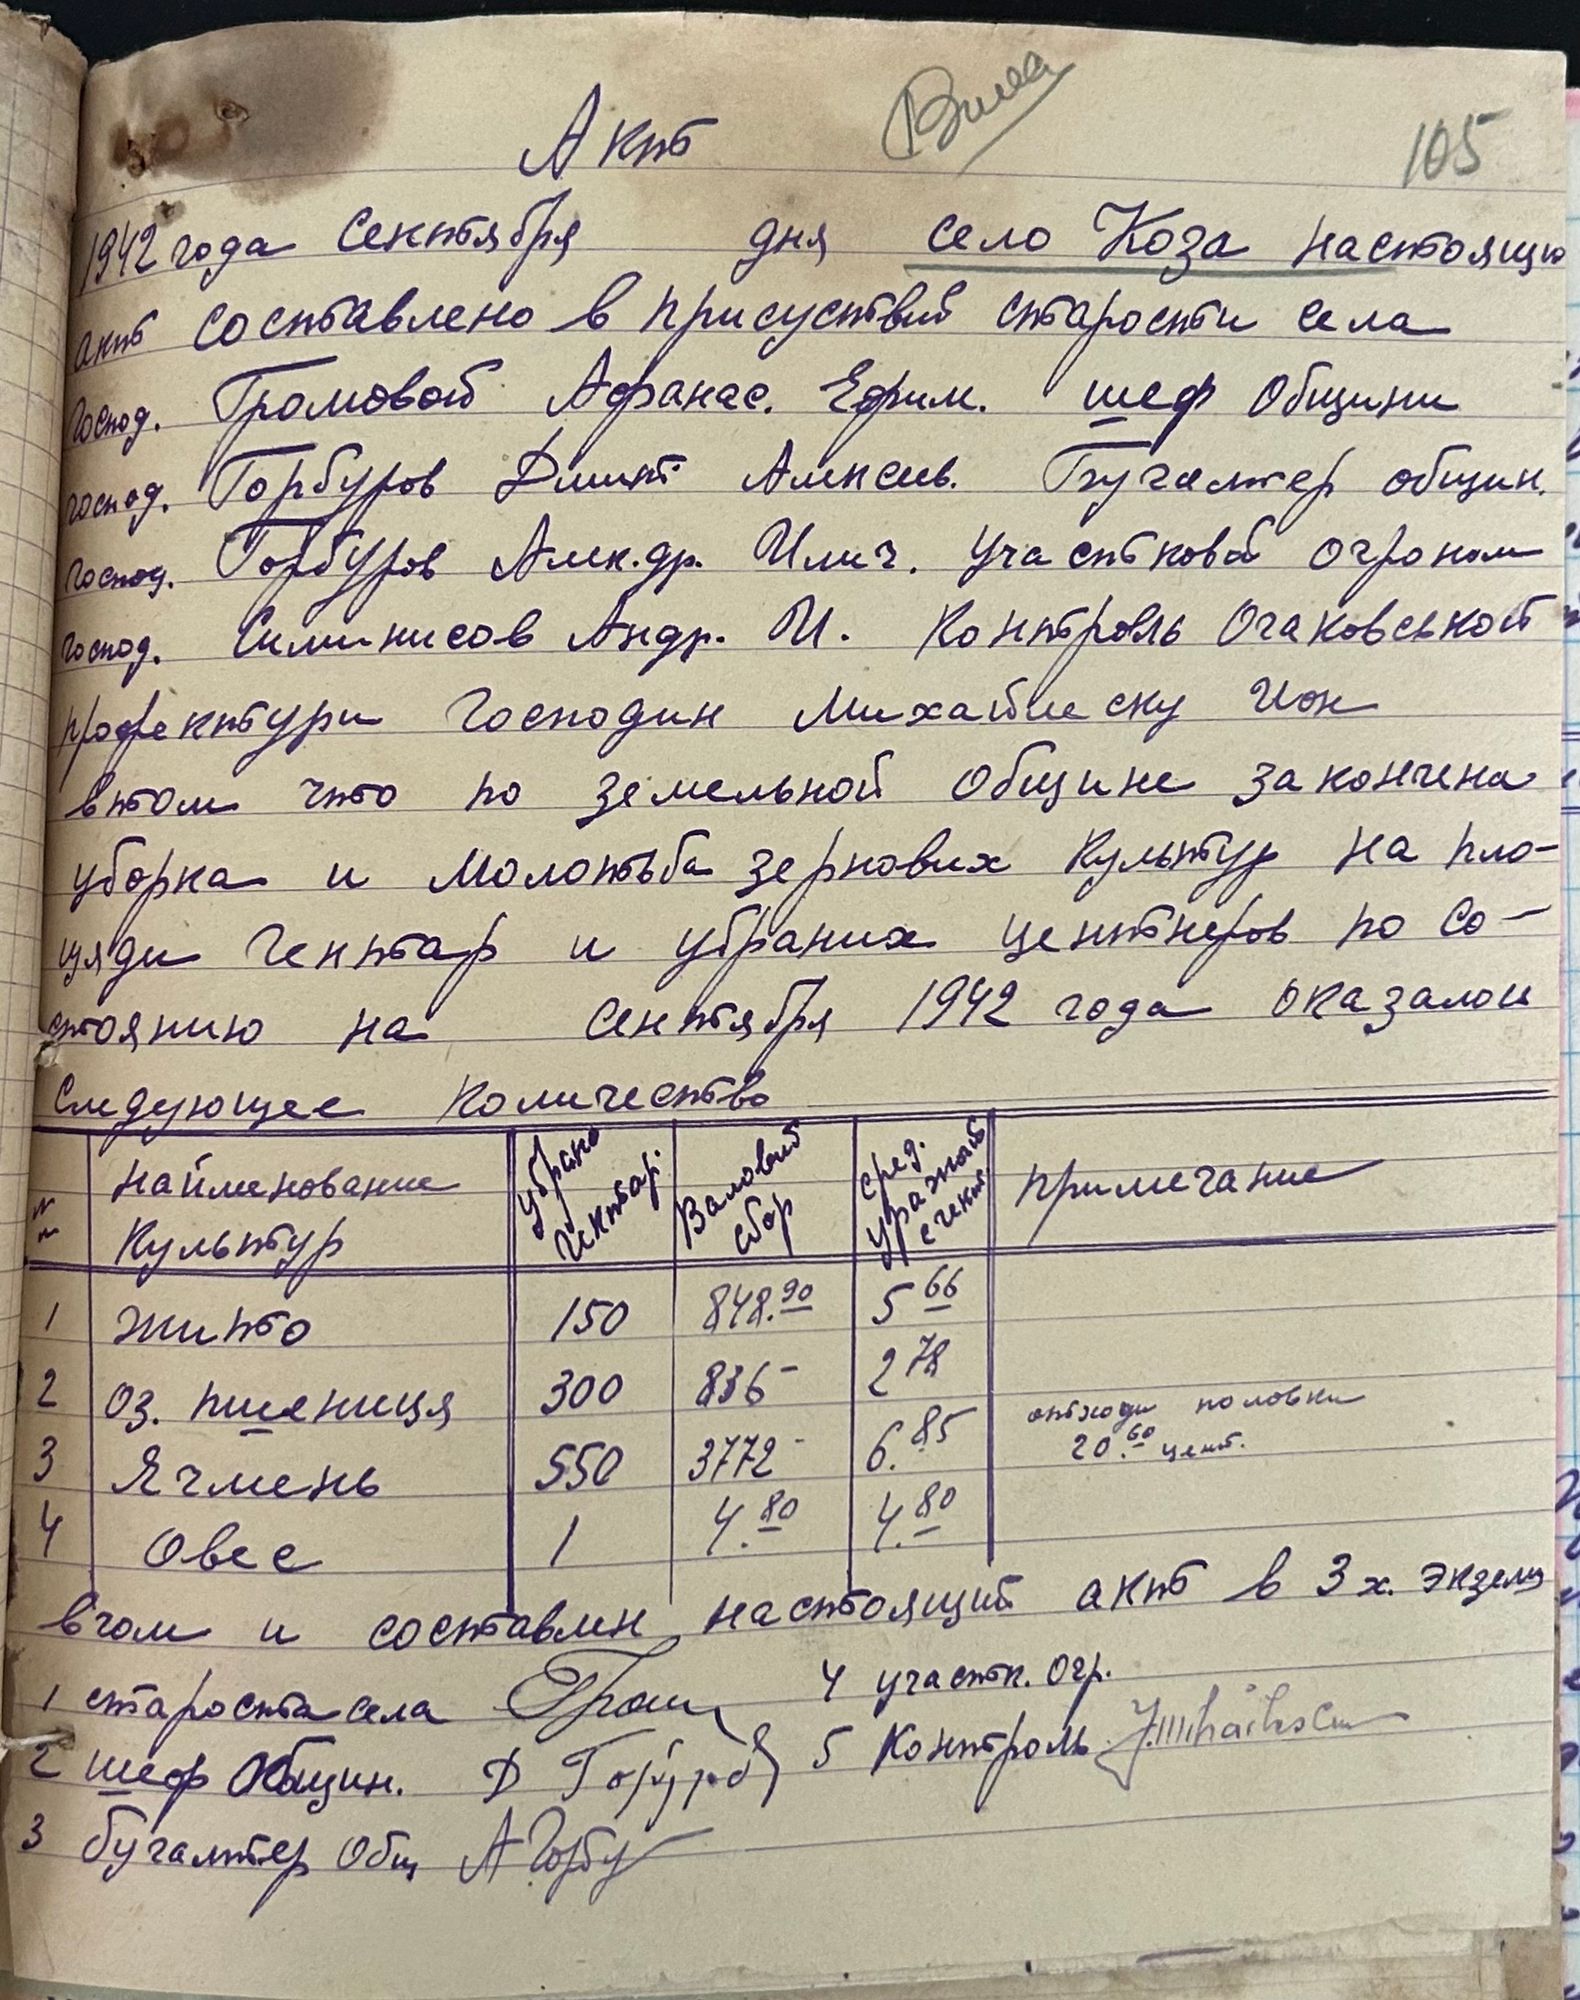 Акт
105
1942 года Сентября дня село Коза настоящию
акт составлено в присуствий старости села
господ. Громовой Афанас. Ефим. шеф Общини
господ. Горбуров Дмит Алексеев. Бугалтер общин.
господ. Горбуров Алек.др. Илич. участковой огроном
господ. Андр. И. Контроль Очаковськой
профектури Господин Михайлеску Ион
втом что по земельной Общине закончена
уборка и Молотьба зернових культур на пло-
щяди Гектар и убраних центнеров по Со-
стоянию на Сентября 1942 года оказалои
Следующее Количество
№№ Наименование Культур Убрано Гектар. Валовий сбор сред. уражай с гект примечание
1 жито 150 848.90 5 66
2 Оз. пшениця 300 836- 2 78
3 Ячмень 550 3772- 6.85 отходи половки 20.60 цент.
4 Овес 1 4.80 4.80
вчом и составлен настоящий акт в 3х. экземп
1 староста села Гром 4 участк. Огр.
2 шеф Общин. Д Горбуров 5 Контроль I. Mihailescu
3 бугалтер Общ А Горбу